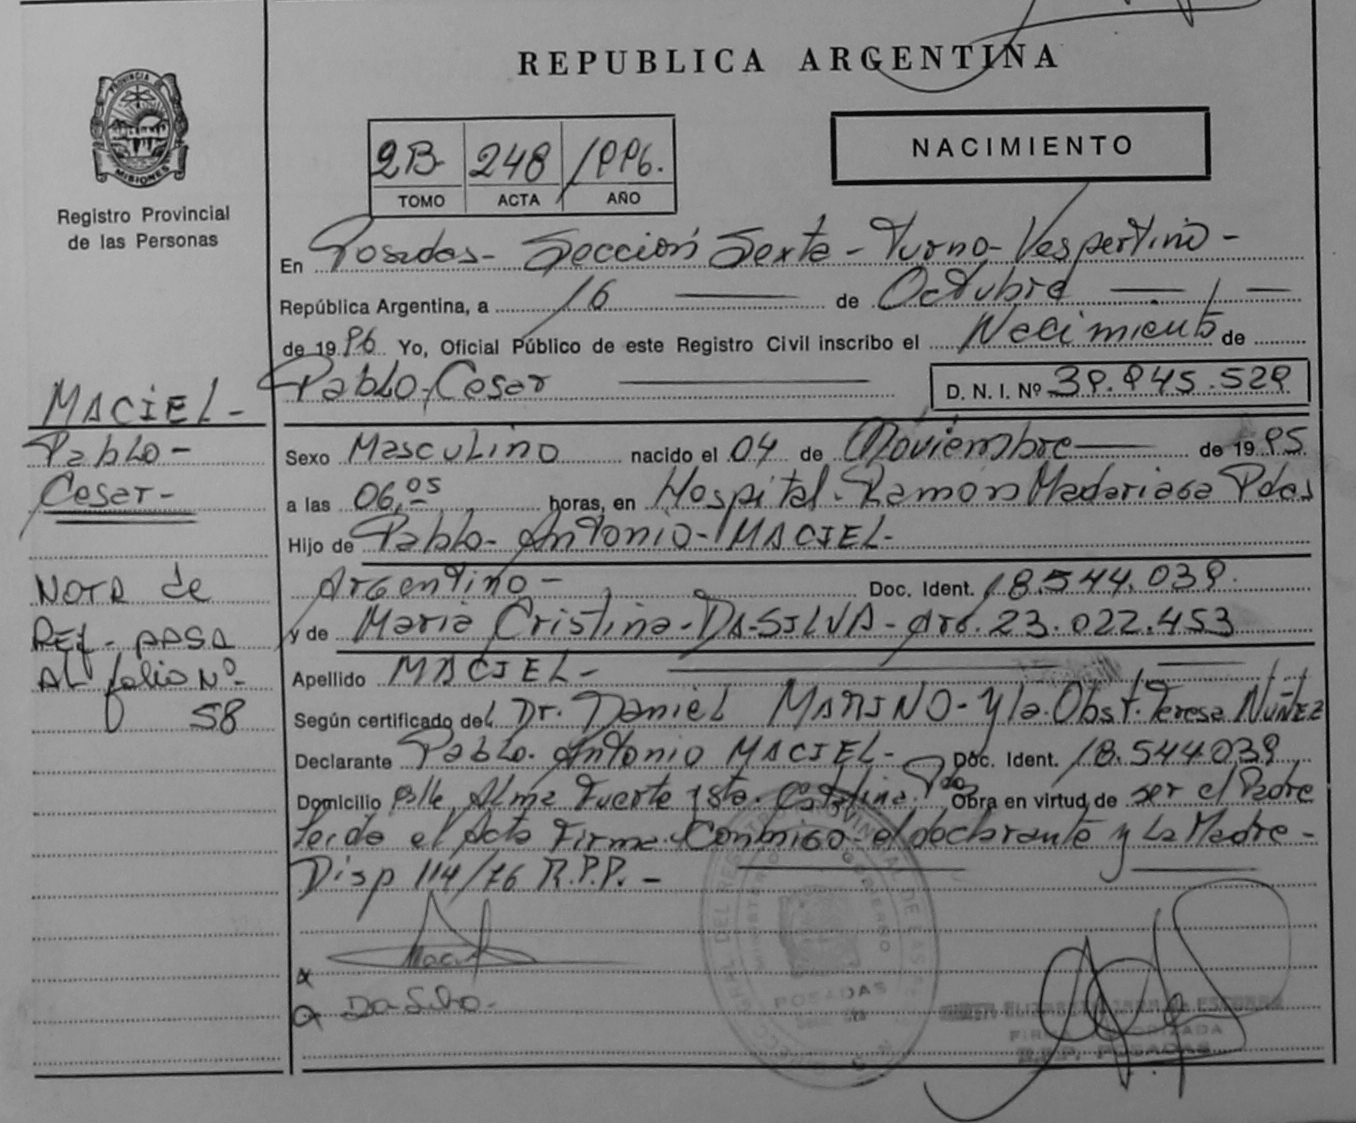 REPUBLICA ARGENTINA
PROVINCIA DE
MISIONES
Registro Provincial
de las Personas
2B 248 1996.
TOMO ACTA AÑO
NACIMIENTO
En Posadas - Sección Sexta - Turno - Vespertino -
República Argentina, a 16 de Octubre
de 1996 Yo, Oficial Público de este Registro Civil inscribo el Nacimiento de
Pablo Cesar D. N. I. Nº 39.945.529
MACIEL -
Pablo -
Cesar -
Sexo Masculino nacido el 04 de Noviembre de 1995
a las 06,05 horas, en Hospital - Ramon Madariaga Pdas
Hijo de Pablo - Antonio - MACIEL -
NOTA de
Ref - 
AL folio Nº
58
Argentino - Doc. Ident. 18.544.039.
y de Maria Cristina - DA-SILVA - Arg. 23.022.453
Apellido MACIEL -
Según certificado del Dr. Daniel MARINO - y la Obst. Teresa NUÑEZ
Declarante Pablo Antonio MACIEL - Doc. Ident. 18.544.039
Domicilio Alma Fuerte Sta. Catalina Obra en virtud de ser el Padre
Leida el Acta Firma Conmigo el declarante y La Madre -
Disp 114/76 R.P.P. -
POSADAS
R.P.P. POSADAS